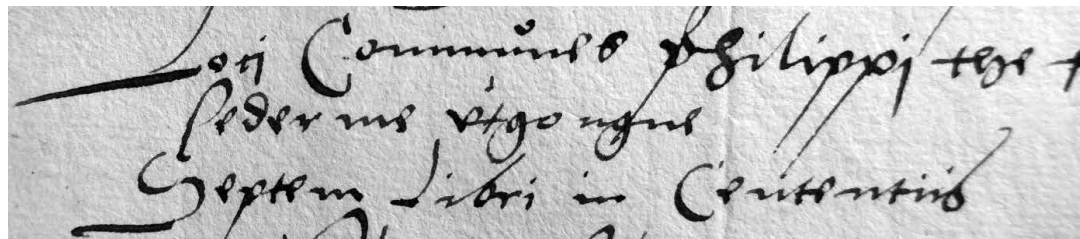 Locij Communes Philippi the
seder me vtgongne
Septem Libri in Cententiis